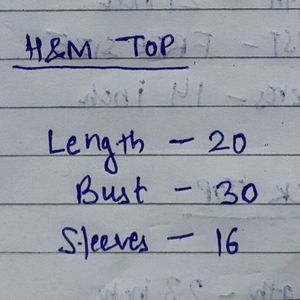 H&M TOP
Length - 20
Bust - 30
Sleeves - 16